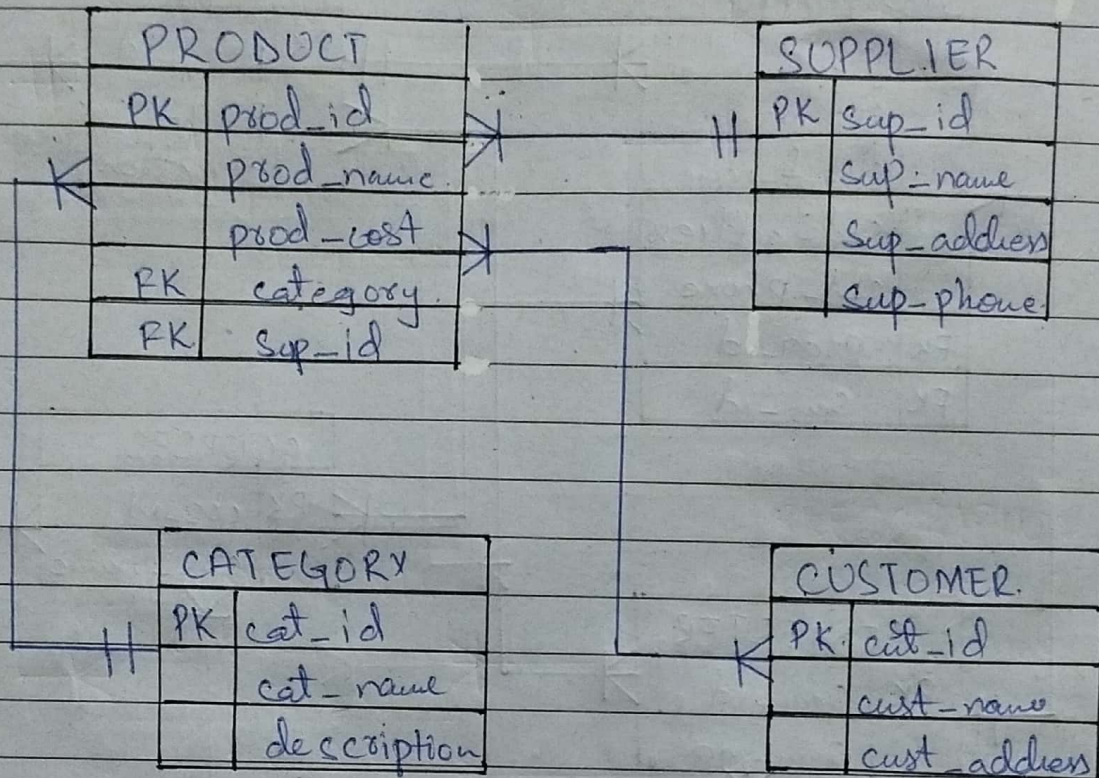 PRODUCT
PK prod_id
prod_name.
prod_cost
FK category.
FK sup_id
SUPPLIER
PK sup_id
sup_name
sup_address
sup_phone.
CATEGORY
PK cat_id
cat_name
description
CUSTOMER.
PK. cut_id
cust_name
cust_address